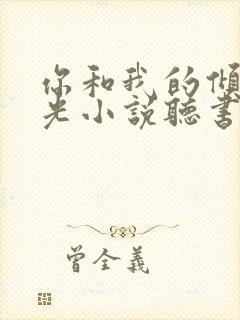 你和我的傾
光小説聽書
曾全義